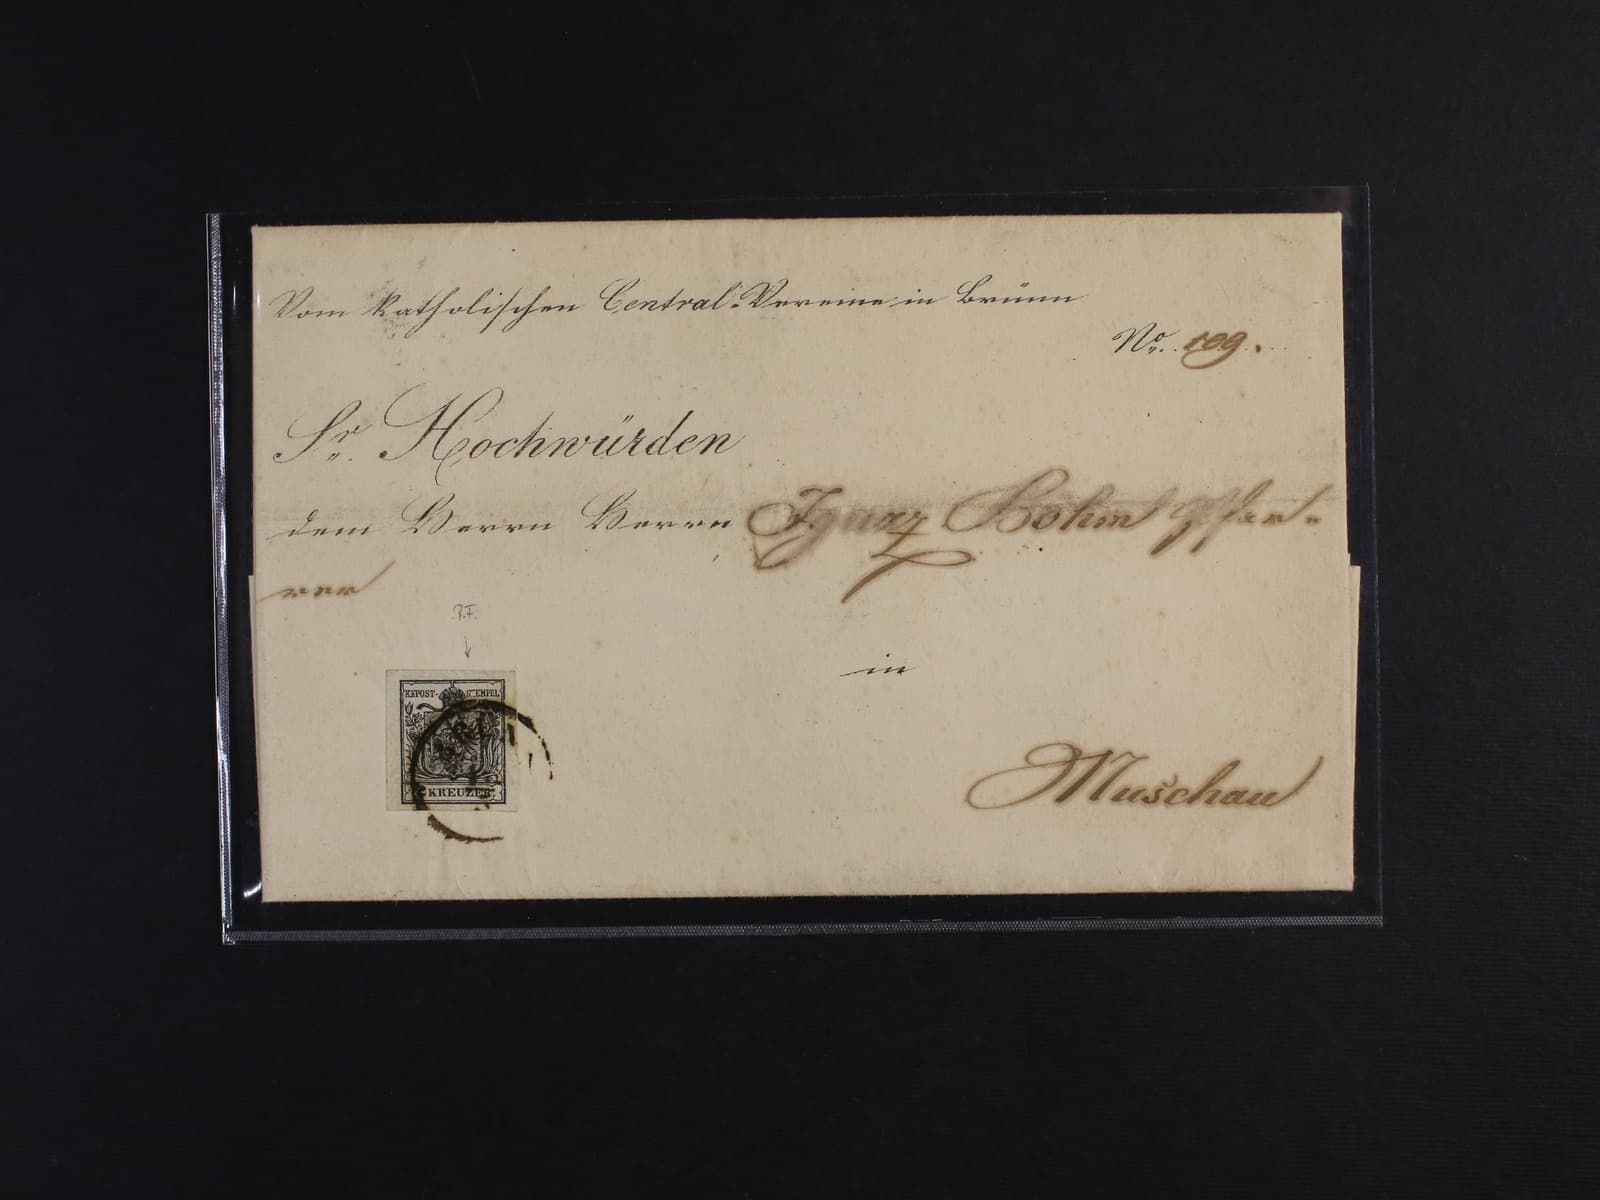 Vom katholischen Central-Vereine in Brünn
No. 109.
Sr. Hochwürden
dem Herrn Herrn Ignaz Bohm Pfar-
rer
P.F.
in
KKPOST-STEMPEL
KREUZER
Muschau